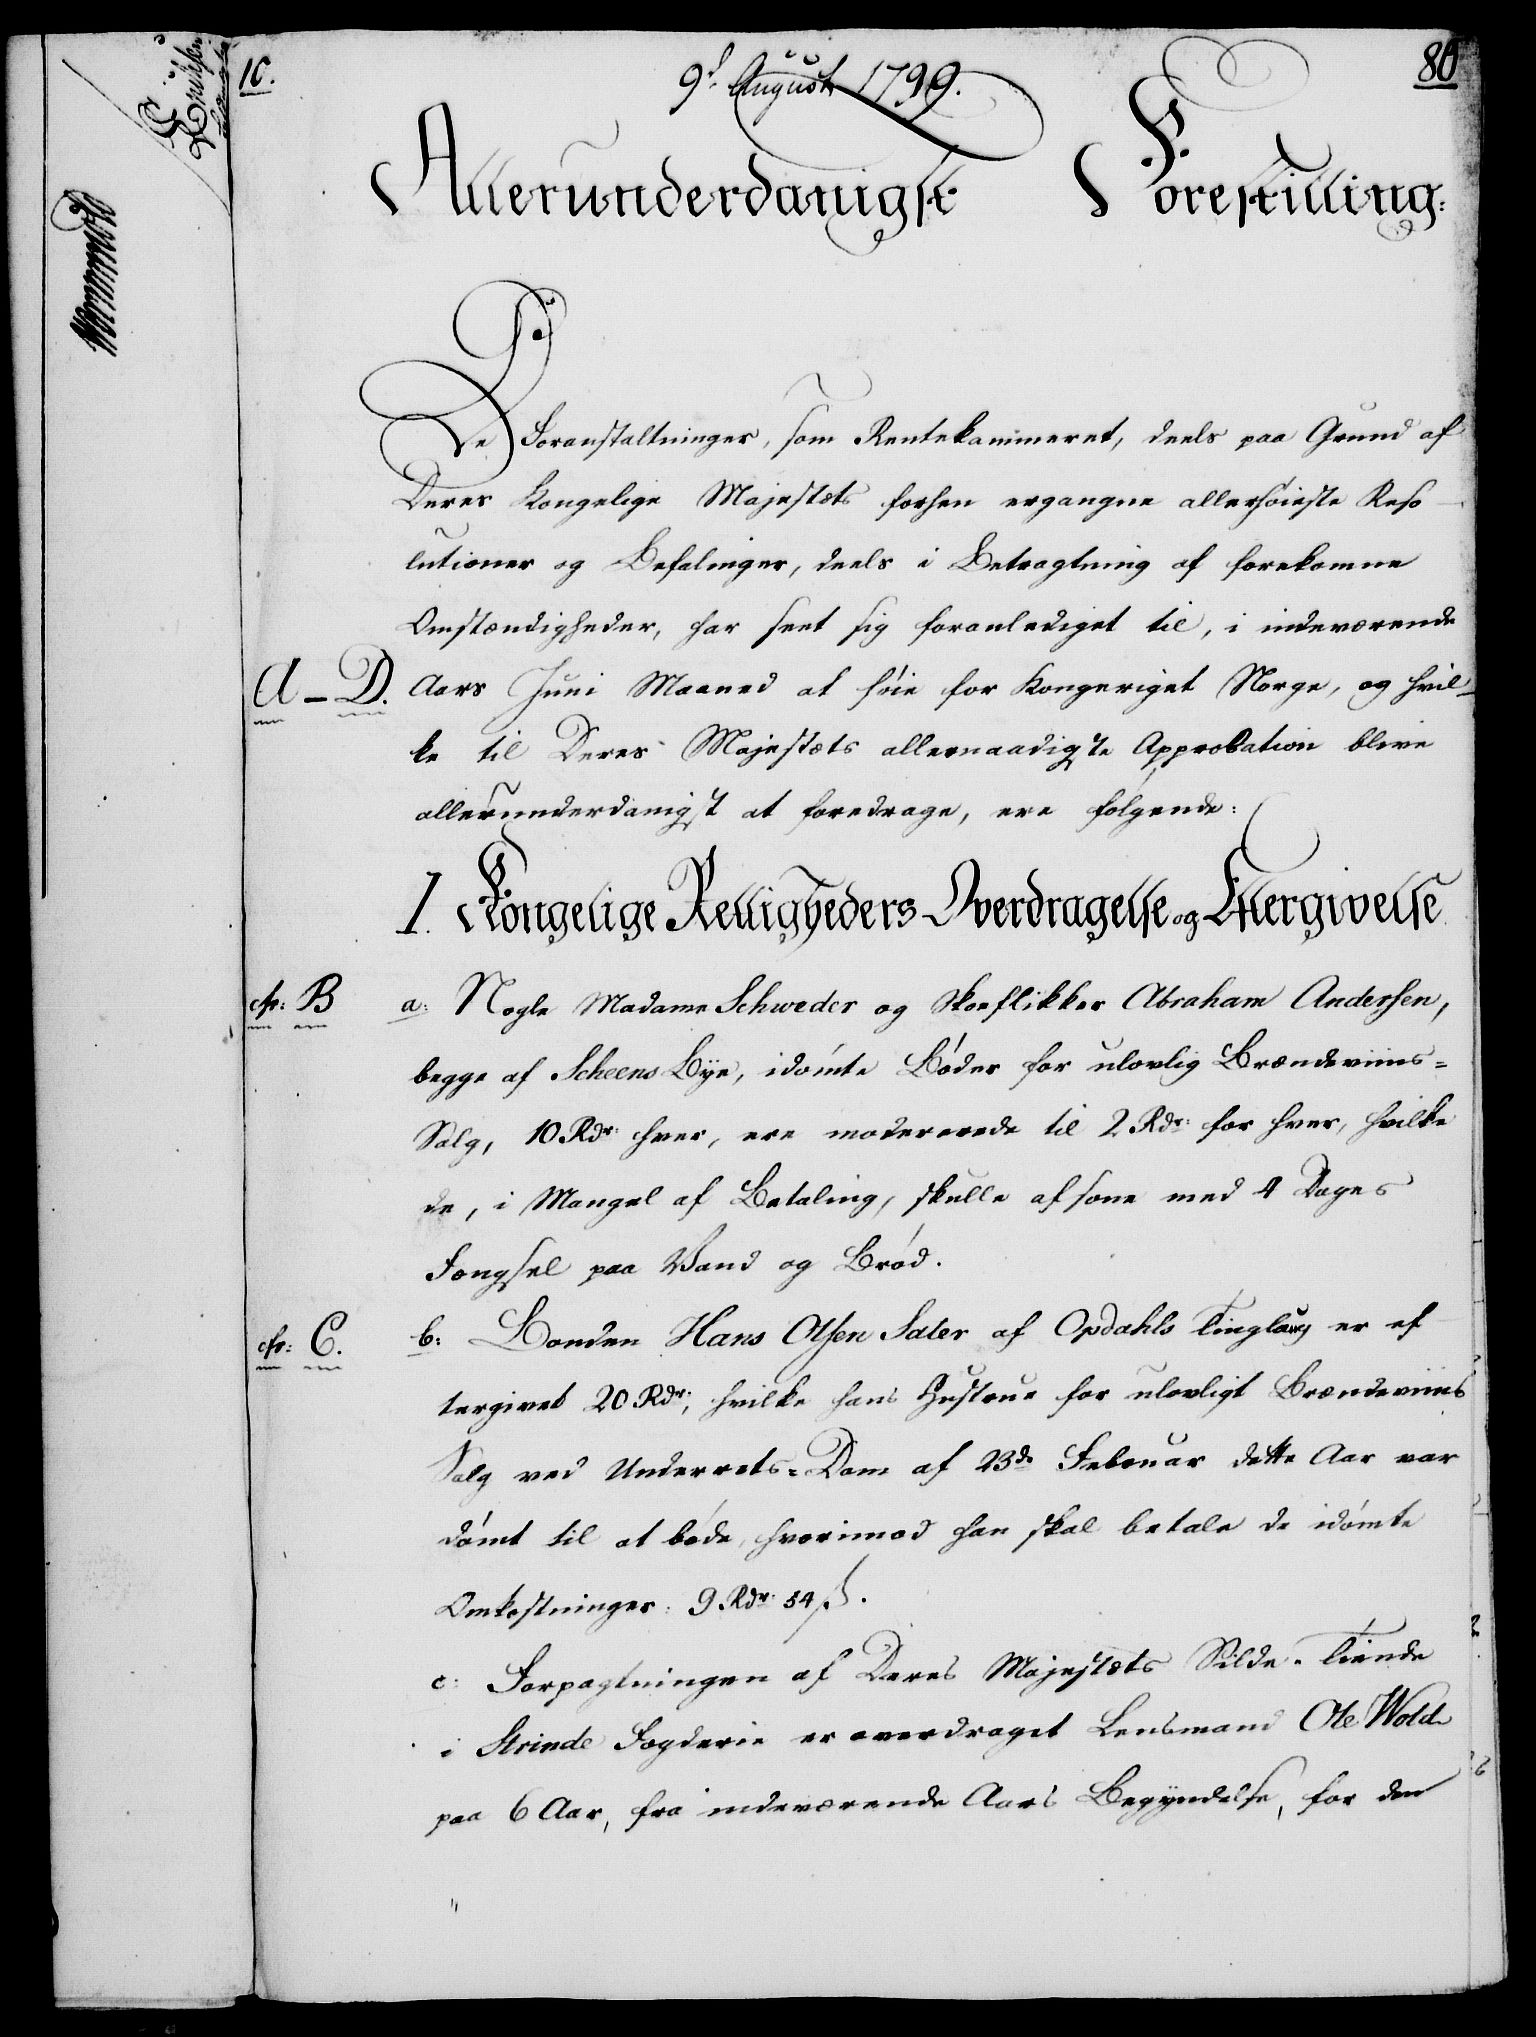 10.
9d August 1799.
80
Allerunderdanigst Forestilling:
De Foranstaltninger, som Rentekammeret, deels paa Grund af
Deres Kongelige Majestæts forhen ergangne allerhøieste Reso
lutioner og Befalinger, deels i Betragtning af forekomne
Omstændigheder, har seet sig foranlediget til, i indeværende
A - D. Aars Juni Maaned at føie for Kongeriget Norge, og hvil-
ke til Deres Majestæts allernaadigste Approbation blive
allerunderdanigst at foredrage, ere følgende:
I. Kongelige Rettigheders Overdragelse og Eftergivelse
cfr: B a: Nogle Madame Schweder og Skoeflikker Abraham Andersen,
begge af Scheens Bye, idømte Bøder for ulovlig Brændeviins=
Salg, 10 Rdr: hver, ere modererede til 2 Rdr: for hver, hvilke
de, i Mangel af Betaling, skulle afsone med 4 Dages
Fængsel paa Vand og Brød.
cfr: C. b: Bonden Hans Olsen Sater af Opdahls Tinglaug er ef
tergivet 20 Rdr:, hvilke hans Hustrue for ulovligt Brændeviins
Salg ved Underrets=Dom af 23de Februar dette Aar var
dømt til at bøde, hvorimod han skal betale de idømte
Omkostninger: 9 Rdr: 54 ß.
c: Forpagtningen af Deres Majestæts Silde-Tiende
i Strinde Fogderie er overdraget Lensmand Ole Wold
paa 6 Aar, fra indeværende Aars Begyndelse, for den